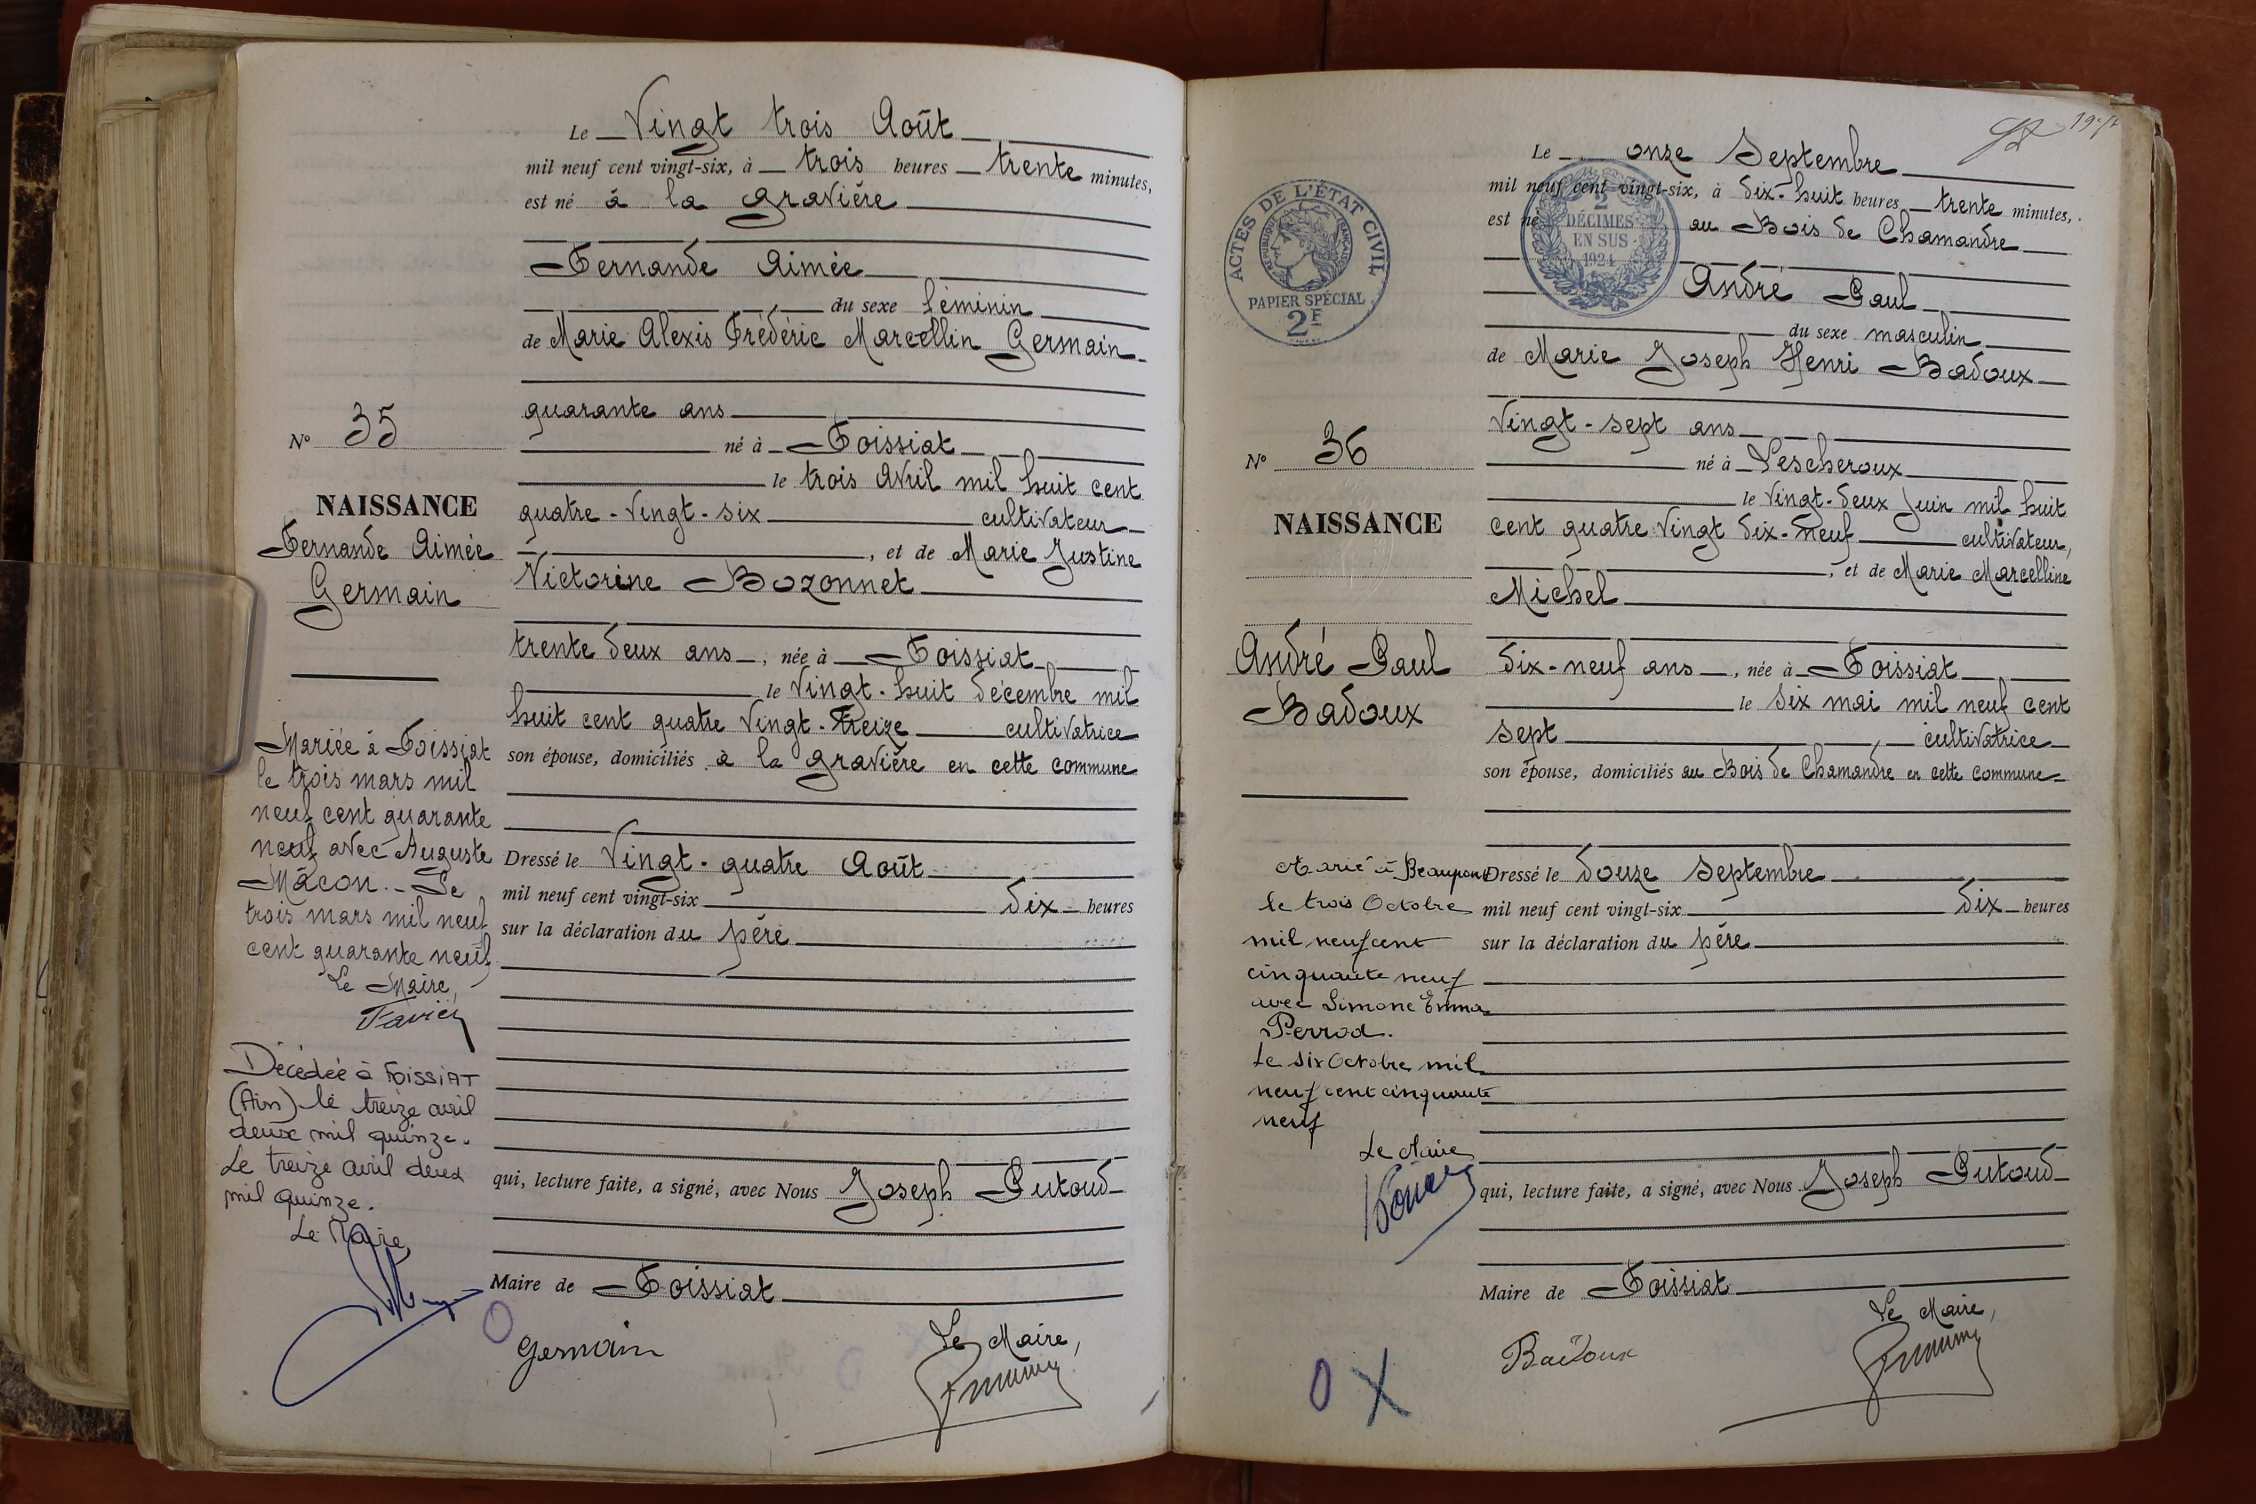 Le Vingt trois Août
mil neuf cent vingt-six, à trois heures trente minutes,
est né à la gravière
Fernande Aimée
du sexe féminin
de Marie Alexis Frédéric Marcellin Germain
quarante ans
né à Foissiat
le trois Avril mil huit cent
quatre-vingt-six cultivateur
, et de Marie Justine
Victorine Bozonnet
trente deux ans, née à Foissiat
le vingt-huit décembre mil
huit cent quatre vingt-treize cultivatrice
son épouse, domiciliés à la gravière en cette commune
Dressé le Vingt-quatre Août
mil neuf cent vingt-six dix heures
sur la déclaration du père
qui, lecture faite, a signé, avec Nous Joseph Putoud
Maire de Foissiat
Le Maire,
Germain
No 35
NAISSANCE
Fernande Aimée
Germain
Mariée à Foissiat
le trois mars mil
neuf cent quarante
neuf avec Auguste
Mâcon. - Le
trois mars mil neuf
cent quarante neuf
Le Maire,
Décédée à FOISSIAT
(Ain) le treize avril
deux mil quinze.
Le treize avril deux
mil quinze.
Le Maire
Le onze Septembre
mil neuf cent vingt-six, à dix-huit heures trente minutes,
est né au Bois de Chamandre
André Paul
du sexe masculin
de Marie Joseph Henri Badoux
vingt-sept ans
né à Lescheroux
le vingt-deux Juin mil huit
cent quatre vingt dix-neuf cultivateur,
, et de Marie Marcelline
Michel
dix-neuf ans, née à Foissiat
le six mai mil neuf cent
sept cultivatrice
son épouse, domiciliés au Bois de Chamandre en cette commune
Dressé le douze Septembre
mil neuf cent vingt-six dix heures
sur la déclaration du père
qui, lecture faite, a signé, avec Nous Joseph Putoud
Maire de Foissiat
Le Maire,
Badoux
ACTES DE L'ÉTAT CIVIL
RÉPUBLIQUE FRANÇAISE
PAPIER SPÉCIAL
2F
2
DÉCIMES
EN SUS
1924
No 36
NAISSANCE
André Paul
Badoux
Marié à Beaupont
le trois Octobre
mil neuf cent
cinquante neuf
avec Simone Emma
Perrod.
Le six Octobre mil
neuf cent cinquante
neuf
Le Maire
O X